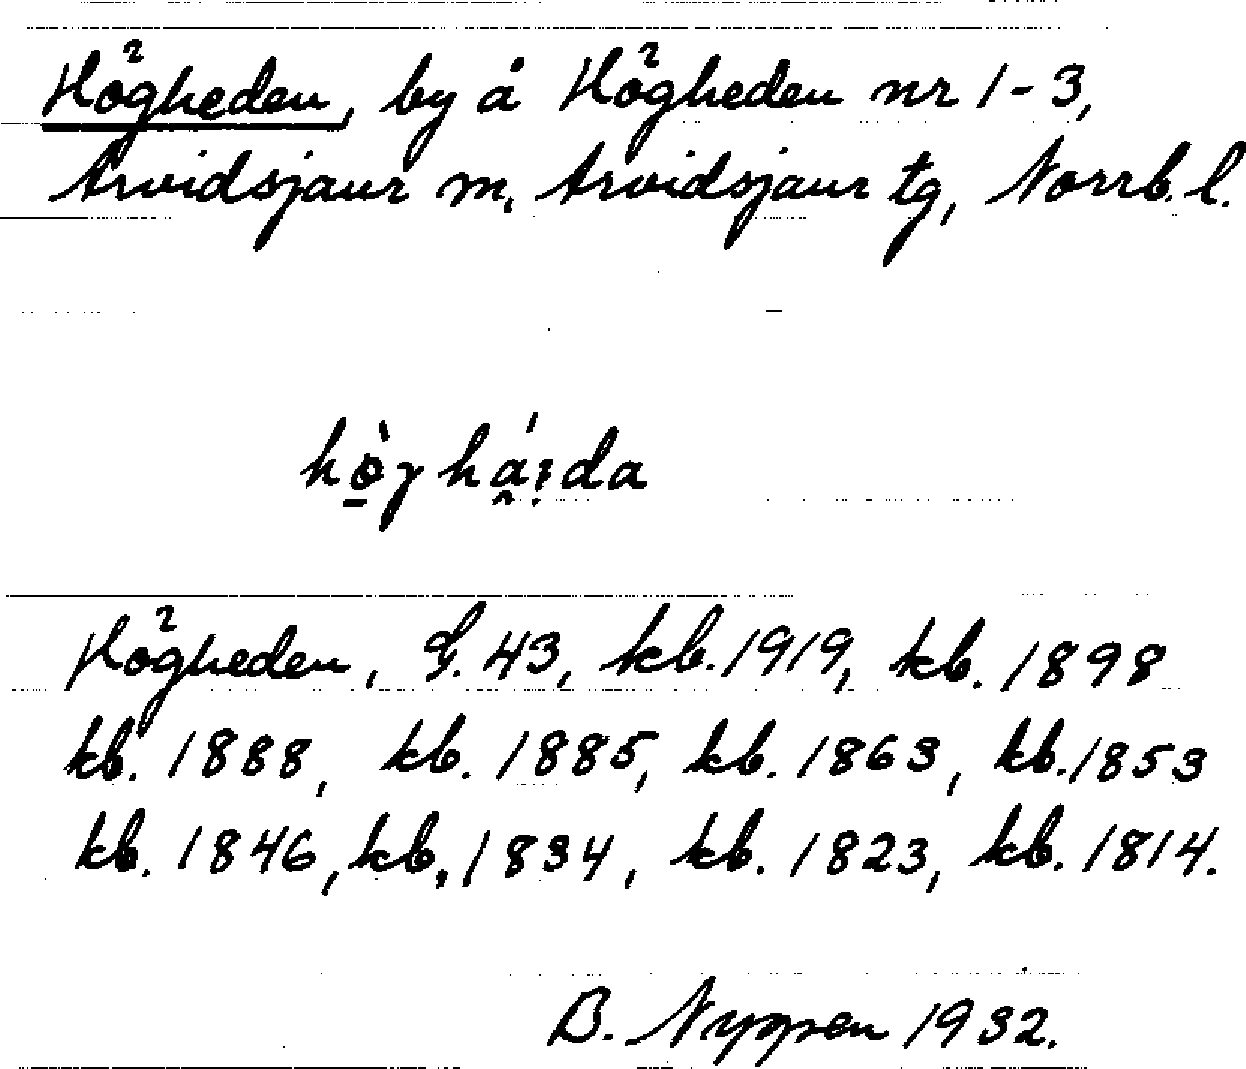 Högheden, by å Högheden nr 1-3,
Arvidsjaur m. Arvidsjaur tg, Norrb. l.
Högheden, G. 43, kb. 1919, kb. 1898
kb. 1888, kb. 1885, kb. 1863, kb. 1853
kb. 1846, kb. 1834, kb. 1823, kb. 1814.
B. Nyppen 1932.